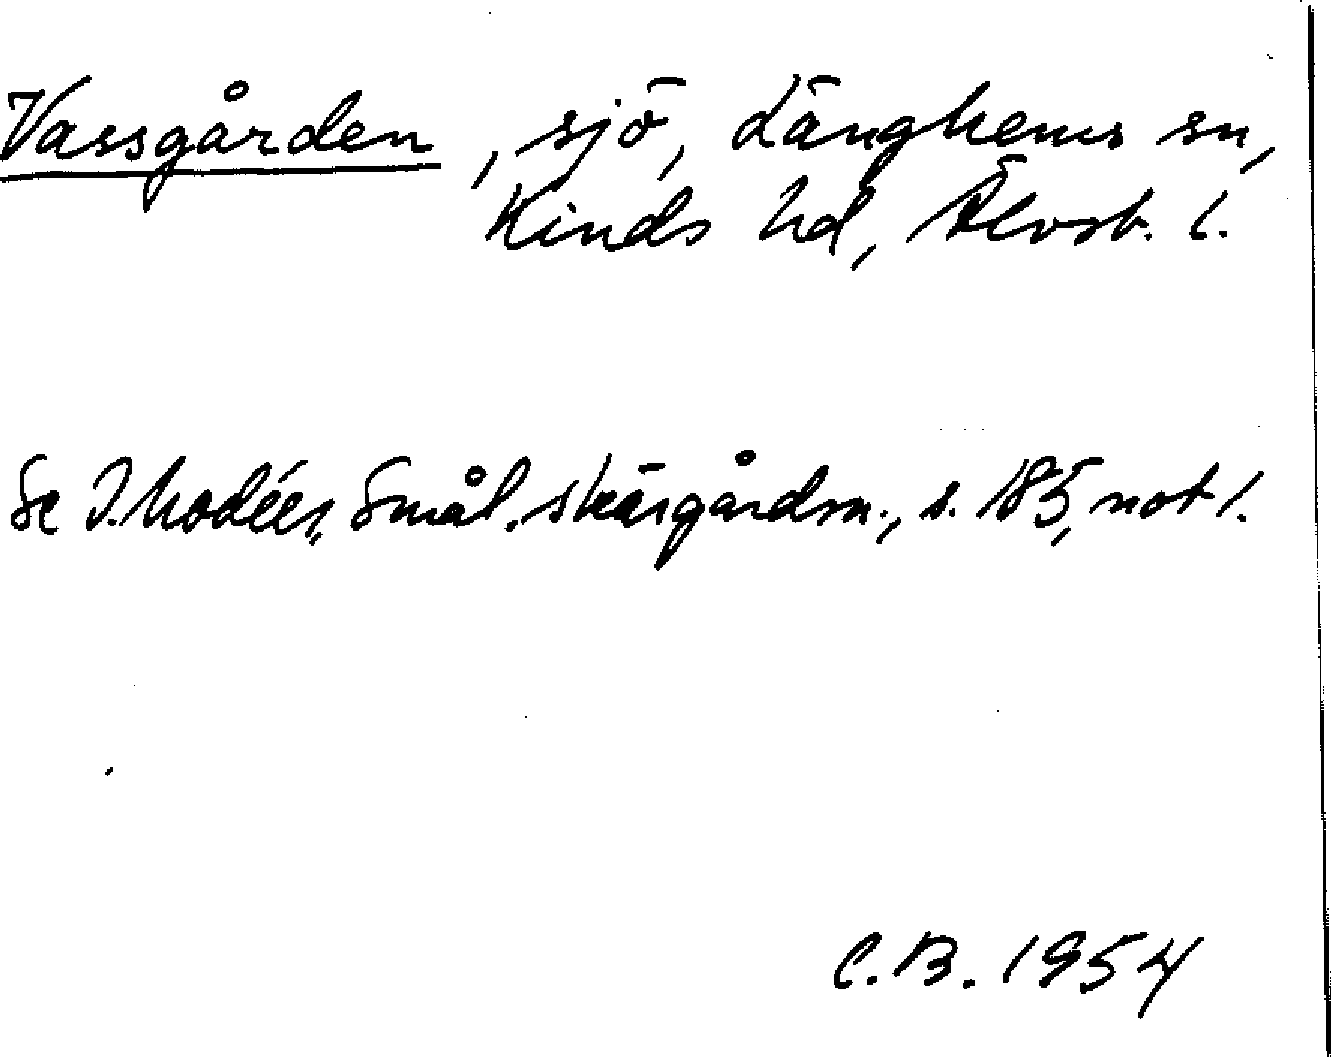 Vassgården, sjö, Länghems sn,
Kinds hd, Älvsb. l.
Se I. Modéer, Smål. skärgårdsn., s. 185, not 1.
C.B. 1954